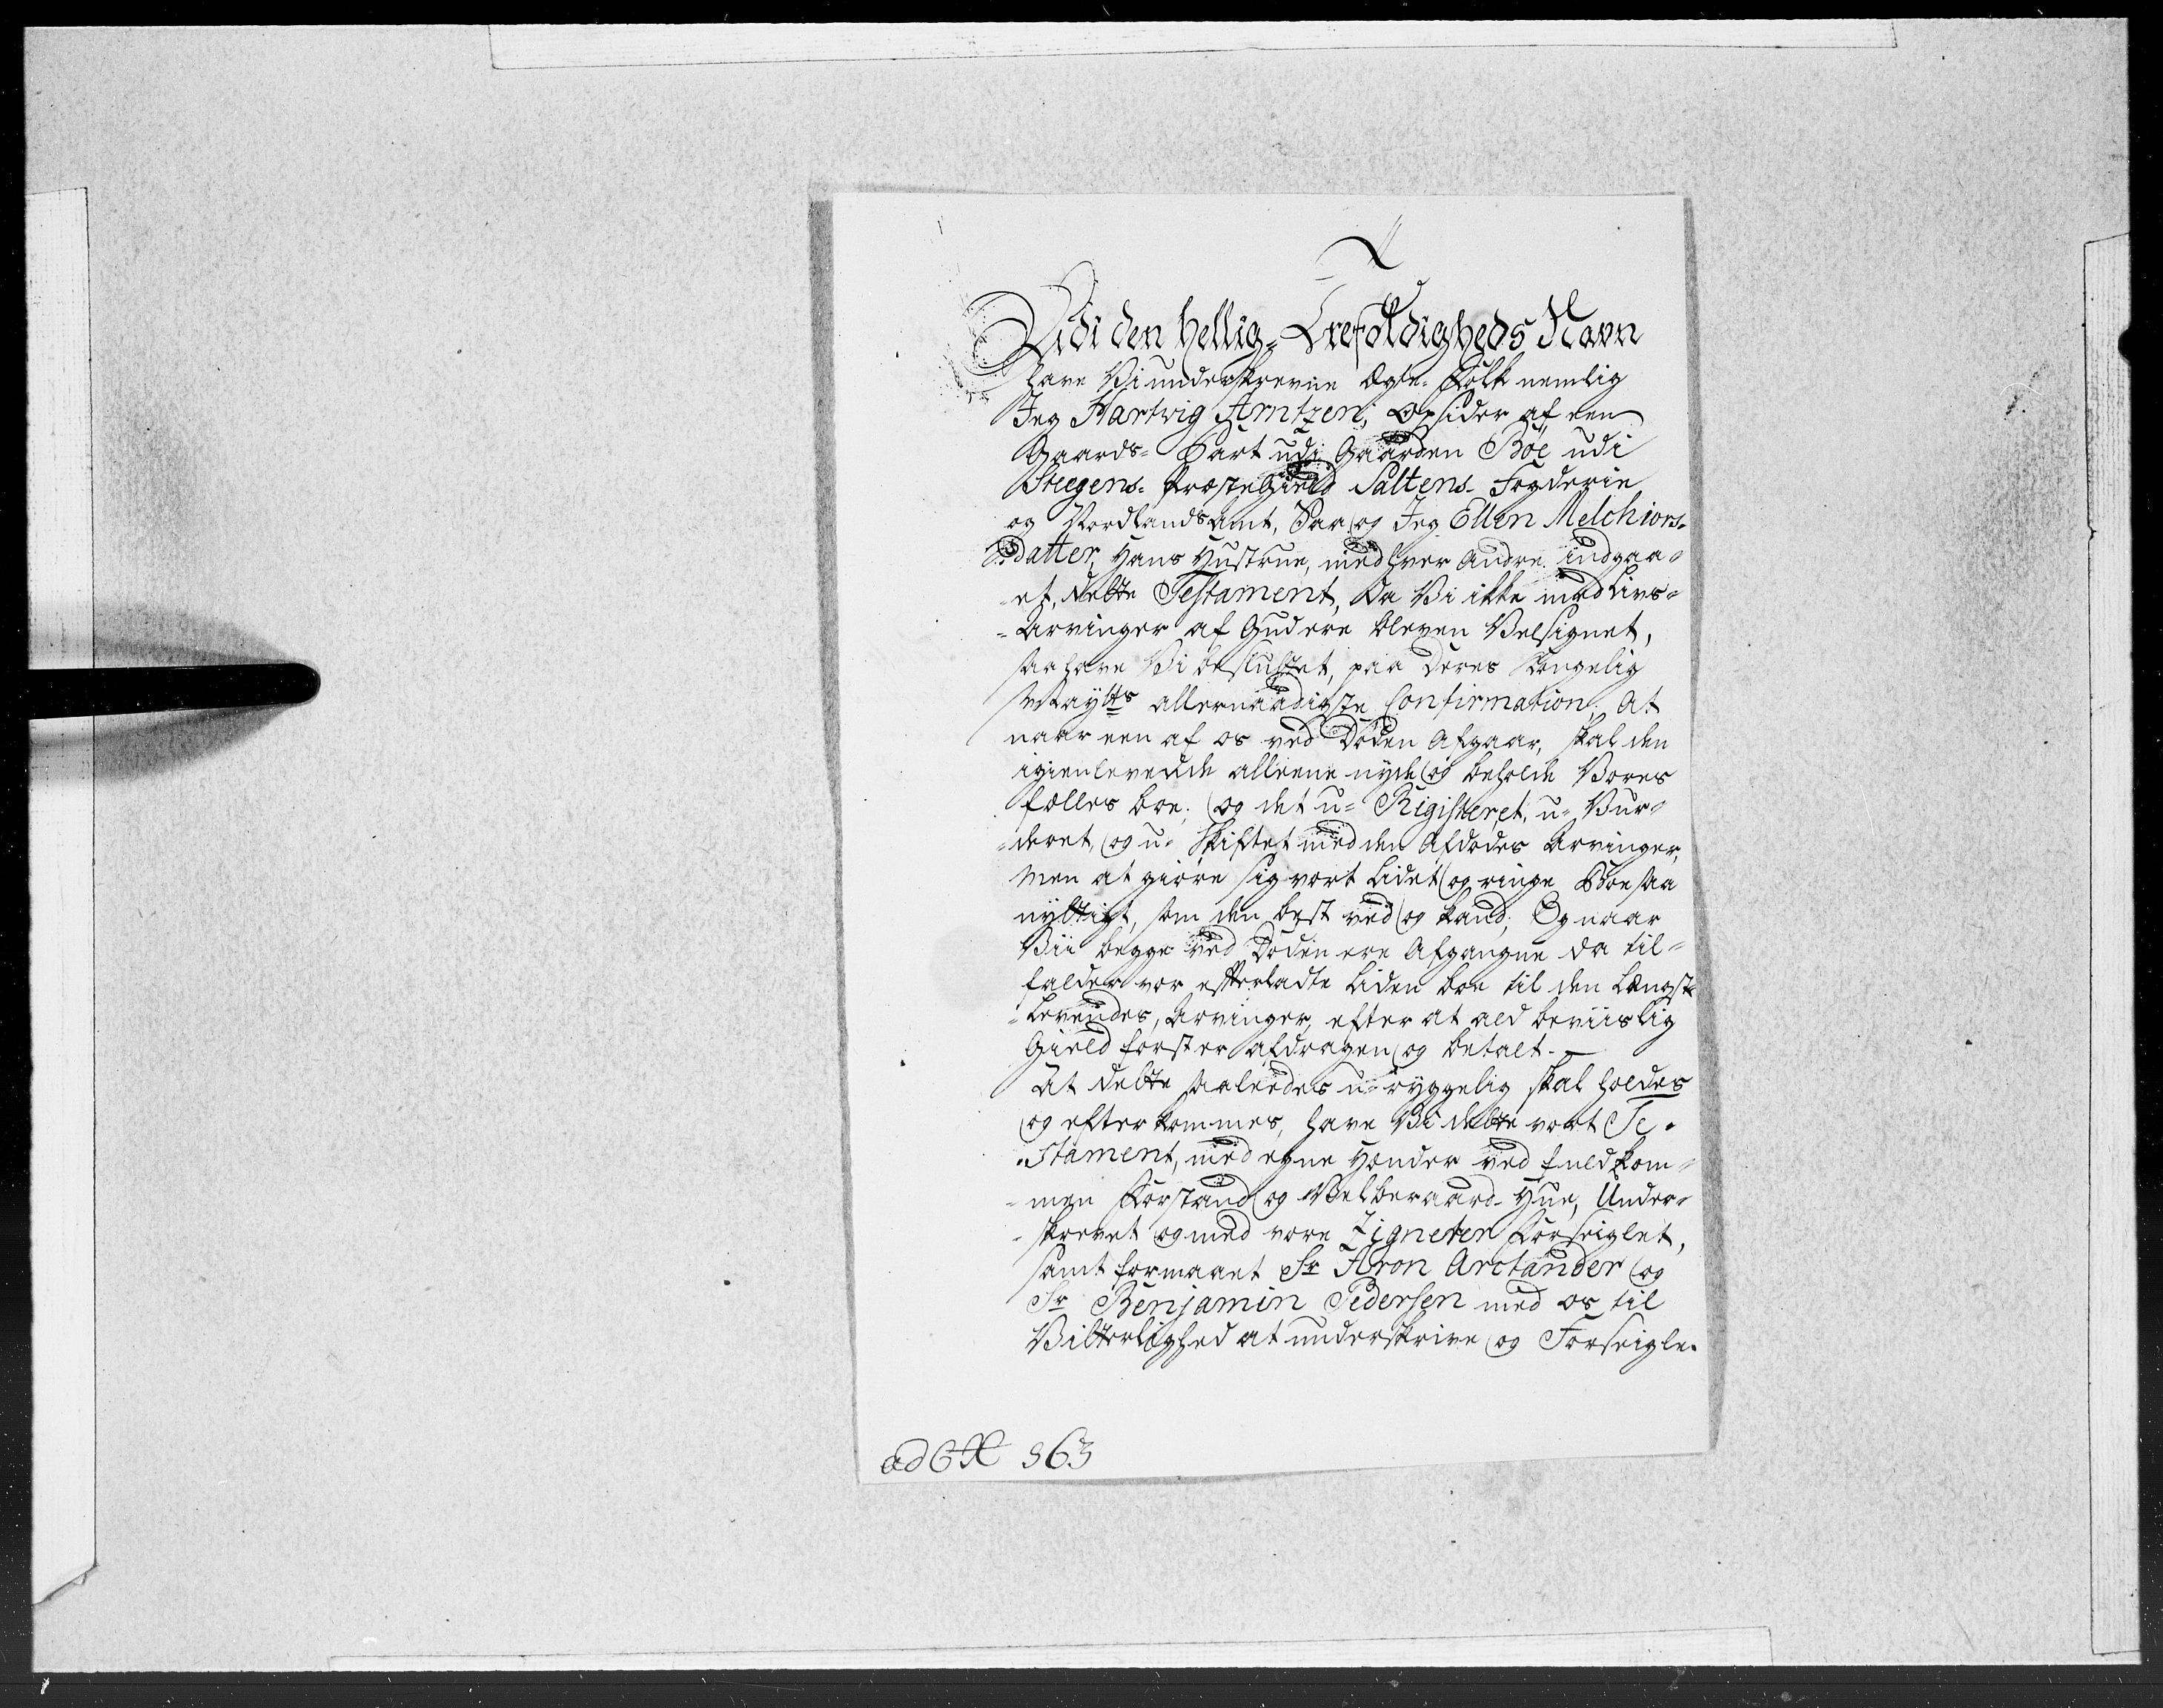 Udi den hellig- Trefoldigheds Navn
have Vi underskrevne Ægte- Folk nemlig
Jeg Hartvig Arntzen, Opsider af een
Gaards- Part udi Gaarden Böe udi
Steegens- Præstegield Saltens- Fogderie
og Nordlands Amt, Saa og Jeg Ellen Melchiors-
datter, Hans Hustrue, med hver Andre indgaa-
et, dette Testament, Da Vi ikke med Livs-
-Arvinger af Gud ere bleven Velsignet,
saa have Vi besluttet, paa Deres Kongelig
Mayts allernaadigste Confirmation; At
naar een af os ved Döden Afgaar, skal den
igienlevende alleene nyde og beholde Vores
fælles boe; og det u- Rigisteret, u- Vur-
-deret, og u- Skiftet med den Afdödes Arvinger,
Men at giöre sig vort Lidet og ringe Boe saa
nyttigt, som den best ved og kand; Og naar
Vii begge ved Döden ere Afgangne da til-
falder vor efterladte Liden boe til den Længst
-Levendes, Arvinger, efter at ald beviislig
Gield først er afdragen og betalt.
At dette saaledes u-ryggelig skal holdes
og efterkommes, have Vi dette vort Te-
-stament, med egne Hænder ved fuldkom-
-men Forstand og Velberaard- Hue, Under-
-skrevet og med vore Zigneter Forseiglet,
samt formaaet Sr Aron Arctander og
Sr Benjamin Pedersen med os til
Vitterlighed at underskrive og Forseigle.
ad 963